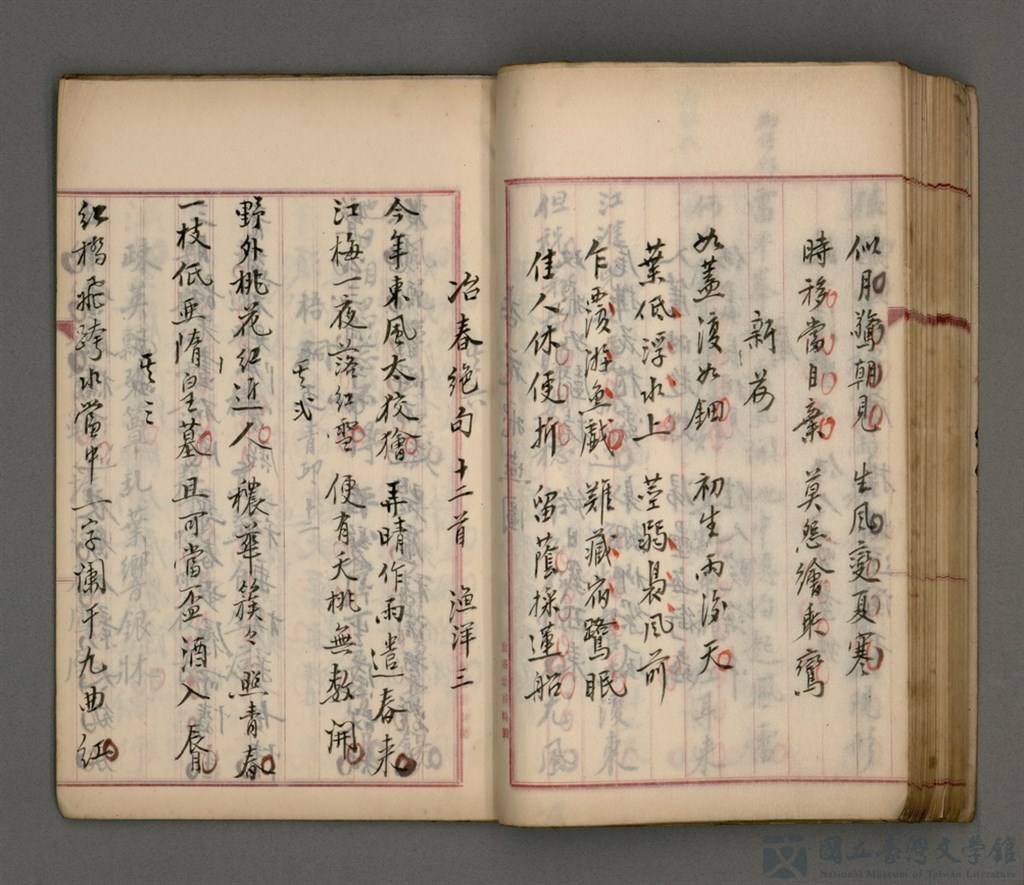 似月驚朝見　生風變夏寒
時移當自棄　莫怨繪乘鸞
新荷
如蓋復如鈿　初生雨後天
葉低浮水上　莖弱晨風前
乍漬游魚戲　難藏宿鷺眠
佳人休便折　留蔭採蓮船
冶春絶句　十二首　漁洋三
今年東風太狡獪　弄晴作雨遣春來
江梅一夜落紅雪　便有夭桃無數開
其弍
野外桃花紅近人　穠華簇々照青春
一枝低亞隋皇墓　且可當盃酒入唇
其三
紅橋飛跨水當中　一字闌干九曲紅
國立臺灣文學館
National Museum of Taiwan Literature